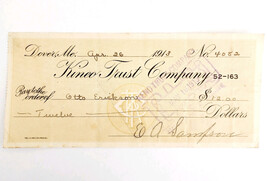 Dover, Me. Apr 26 1913 No. 4082
Kineo Trust Company 52-163
Pay to the order of Otto Erickson $12.00
Twelve Dollars
E A Sampson